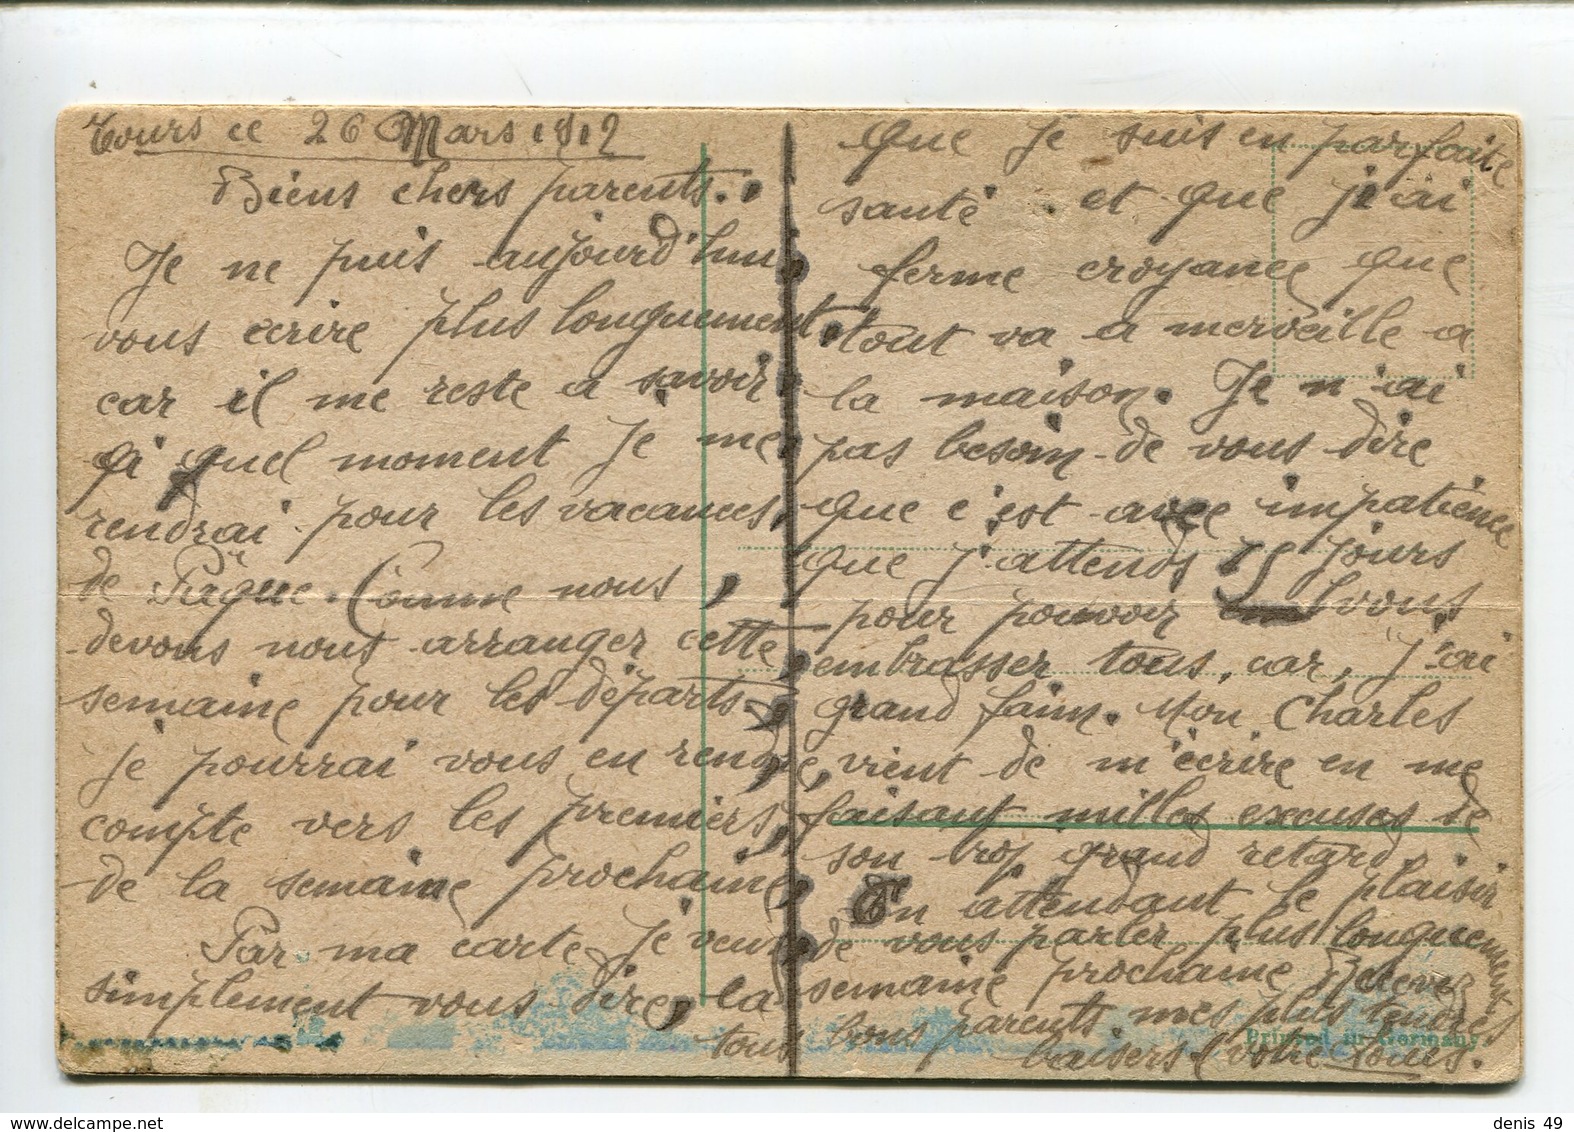 Tours ce 26 Mars 1912
Biens chers parents.
Je ne puis aujourd'hui
vous écrire plus longuement
car il me reste a savoir
a quel moment je me
rendrai pour les vacances,
de Pâque. Comme nous
devons nous arranger cette
semaine pour les départs,
je pourrai vous en rendre
compte vers les premiers,
de la semaine prochaine,
Par ma carte, je veux
simplement vous dire, la
que je suis en parfaite
santé et que j'ai
ferme croyance que
tout va a merveille a
la maison. Je n'ai
pas besoin de vous dire
que c'est avec impatience
que j'attends jours
pour pouvoir vous
embrasser tous, car, j'ai
grand faim. Mon Charles
vient de m'écrire en me
faisant milles excuses de
son trop grand retard,
En attendant le plaisir
de vous parler plus longuement
semaine prochaine Recevez
tous bons parents mes plus tendres
baisers votre
Printed in Germany
denis 49